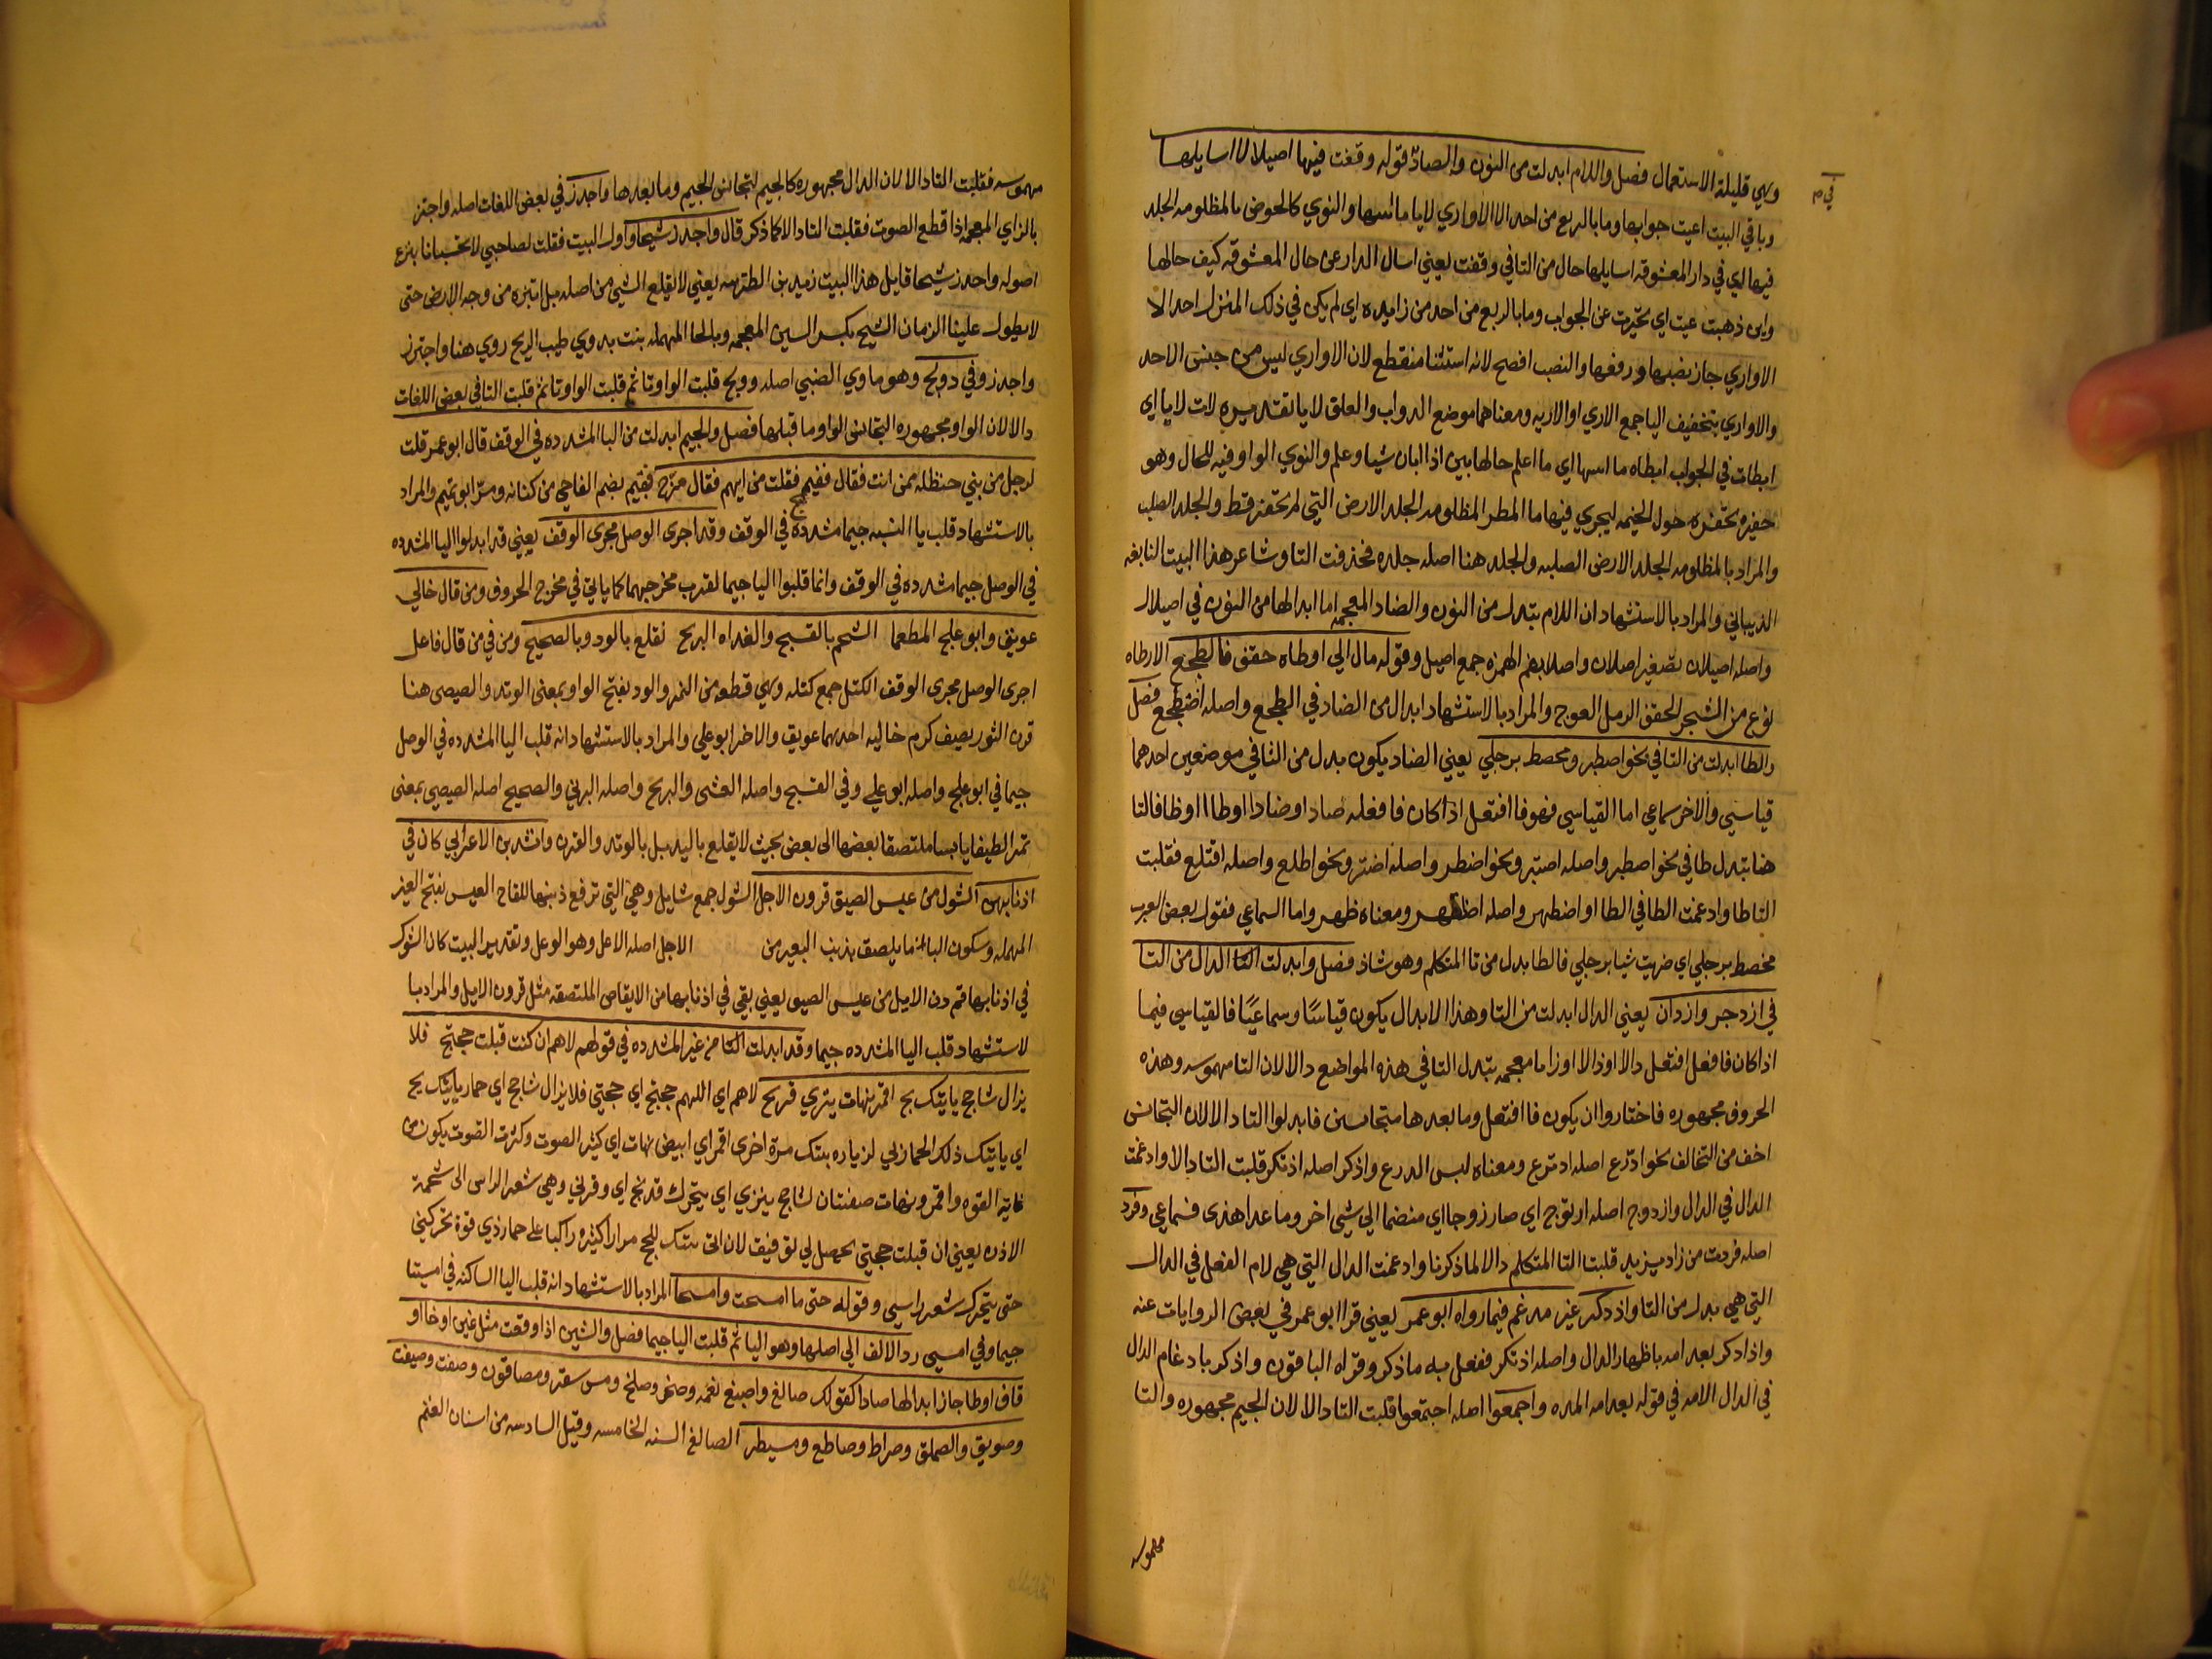 وهي قليلة الاستعمال فصل واللام ابدلت من النون والضاد قوله وقفت فيها اصيلالا اسايلها
في م
وباقي البيت اعيت جوابها وما بالربع من احد الا الاواري لايا ما ابينها والنوي كالحوض بالمظلومه الجلد
فيها اي في دار المعشوقه اسايلها حال من التا في وقفت يعني اسال الدار عن حال المعشوقه كيف حالها
واين ذهبت عيت اي تحيرت عن الجواب وما بالربع من احد من زايده اي لم يكن في ذلك المنزل احد الا
الاواري جاز نصبها ورفعها والنصب افصح لانه استثنا منقطع لان الاواري ليس من جنس الاحد
والاواري بتخفيف اليا جمع الاري او الاريه ومعناهما موضع الدواب والعلق لايا تقديره لات لايا اي
ابطات في الجواب ابطاه ما ابينها اي ما اعلم حالها بين اذا ابان شيا وعلم والنوي الواو فيه للحال وهو
حفيره تحفره حول الخيمه ليجري فيها ما المطر المظلومه الجلد الارض التي لم تحفر قط والجلد الصلب
والمراد بالمظلومه الجلد الارض الصلبه والجلد هنا اصله جلده فحذفت التا وشاعر هذا البيت النابغه
الذبياني والمراد بالاستشهاد ان اللام بتدل من النون والضاد المعجمه اما ابدالها من النون في اصيلال
واصله اصيلان تصغير اصلان واصلا بضم الهمزه جمع اصيل وقوله مال الي اوطاه حقف فالطجع الارطاه
نوع من الشجر الحقف الرمل العوج والمراد بالاستشهاد ابدال من الضاد في الطجع واصله اضطجع فصل
والطا ابدلت من التا في نحو اصطبر ومحصط برجلي يعني الضاد يكون بدل من التا في موضعين احدهما
قياسي والاخر سماعي اما القياسي فهو فا افتعل اذا كان فا فعله صادا وضادا او طا او ظا فالتا
هنا بتدل طا في نحو اصطبر واصله اصتبر ونحو اضطر واصله اضتر ونحو اطلع واصله اقتلع فقلبت
التا طا وادغمت الطا في الطا او اضطهر واصله اظتهر ومعناه ظهر واما السماعي فقول بعض العرب
مخصط برجلي اي ضربت شيا برجلي فالطا بدل من تا المتكلم وهو شاذ فصل وابدلت التا الدال من التا
في ازدجر وازدان يعني الدال ابدلت من التا وهذا الابدال يكون قياسًا وسماعيًا فالقياسي فيما
اذا كان فا فعل افتعل دالا او ذالا او زاما معجمه بتدل التا في هذه المواضع دالا لان التا مهموسه وهذه
الحروف مجهوره فاختاروا ان يكون فا افتعل وما بعدها متجانسين فابدلوا التا دالا لان التجانس
اخف من التخالف نحو ادرع اصله ادترع ومعناه لبس الدرع واذكر اصله اذتكر قلبت التا دالا وادغمت
الدال في الدال وازدوج اصله ازتوج اي صار زوجا اي منضما الي شيي اخر وما عدا هذي فسماعي وفزد
اصله فزدت من زاد يزيد قلبت التا المتكلم دالا لما ذكرنا وادغمت الدال التي هي لام الفعل في الدال
التي هي بدل من التا واذدكر غير مدغم فيما رواه ابو عمر يعني قرا ابو عمر في بعض الروايات عنه
واذا دكر بعد امه باظهار الدال واصله اذتكر ففعل به ما ذكر وقراه الباقون واذكر بادغام الدال
في الدال الامه في قوله بعد امه المده واجمعوا اصله اجتمعوا قلبت التا دالا لان الجيم مجهوره والتا
مهموسه
مهموسه فقلبت التا دالا لان الدال مجهوره كالجيم لتجانس الجيم وما بعدها واجدز في بعض اللغات اصله واجتز
بالزاي المعجمه اذا قطع الصوت فقلبت التا دالا كما ذكر قال واجدز شيحا واول البيت فقلت لصاحبي لا تحبسانا بنزع
اصوله واجدز شيحا قايل هذا البيت زميد بن الطثريه يعني لا يقلع الشي من اصله بل اتبزه من وجه الارض حتى
لا يطول علينا الزمان الشيح بكسر السين المعجمه وبالحا المهمله بنت بدوي طيب الريح روي هنا واجتزز
واجدز وفي دولج وهو ماوي الضبي اصله وولج قلبت الواو تا ثم قلبت الواو تا ثم قلبت التا في بعض اللغات
دالا لان الواو مجهوره التجانس الواو وما قبلها فصل والجيم ابدلت من اليا المشدده في الوقف قال ابو عمر قلت
لرجل من بني حنظله ممن انت فقال فقيمج فقلت من ايهم فقال مرّج فقيم بضم الفا حي من كنانه ومر ابو تميم والمراد
بالاستشهاد قلب يا النسبه جيما مشدده في الوقف وقد اجرى الوصل مجرى الوقف يعني قد ابدلوا اليا المشدده
في الوصل جيما مشدده في الوقف وانما قلبوا اليا جيما لقرب مخرجهما كما ياتي في مخرج الحروف ومن قال خالي
عويف وابو علج المطعما الشحم بالقسج والغداه البرنج تقلع بالود وبالصيصج ومن في من قال فاعل
اجرى الوصل مجرى الوقف الكتل جمع كتله وهي قطعه من التمر والود بفتح الواو بمعنى الوتد والصيصي هنا
قرن الثور يصيف كرم خاليه احدهما عويق والاخر ابو علي والمراد بالاستشهاد انه قلب اليا المشدده في الوصل
جيما في ابو علج واصله ابو علي وفي القسج واصله العشي والبرنج واصله البرني والصيصج اصله الصيصي بمعنى
تمر الطيفا يابسا ملتصقا بعضها الى بعض بحيث لا يقلع باليد بل بالوتد والقرن وانشد بن الاعرابي كان في
اذنابهن الشول من عبس الصيف قرون الاجل الشول جمع شايل وهي التي ترفع ذنبها للقاح العبس بفتح العين
المهمله وسكون البا ما يلصق بذنب البعير من الاجل اصله الاعل وهو الوعل وتقدير البيت كان الشول
في اذنابها قم دن الايل من عبس الصيف يعني بقي في اذنابها من الايقاص الملتصقه مثل قرون الايل والمراد با
لاستشهاد قلب اليا المشدده جيما وقد ابدلت التا من غير المشدده في قولهم لاهم ان كنت قبلت حجتج فلا
يزال شاحج ياتيك بج اقمر نهات ينزي وفرتج لاهم اي اللهم حجتج اي حجتي فلا يزال شاحج اي حمار ياتيك بج
اي ياتيك ذلك الحمار بي لزياره بيتك مرة اخرى اقمر اي ابيض نهات اي كثير الصوت وكثرت الصوت يكون من
غاية القوه واقمر ونهات صفتان لشاحج ينزي اي يتحرك وفرتج اي وفرتي وهي شعر الراس الى شحمة
الاذن يعني ان قبلت حجتي يحصل لي توفيق لان اتى بيتك للحج مرارا كثيره راكبا على حمار ذي قوة تحركني
حتى يتحرك شعر راسي وقوله حتى ما امسجت وامسجا المراد بالاستشهاد انه قلب اليا الساكنه في امسيتا
جيما وفي امسى رد الالف الى اصلها وهو اليا ثم قلبت اليا جيما فصل والشين اذا وقعت مثل غين او خا او
قاف او طا جاز ابدالها صادا كقولك صالغ واصبغ نعمه وصخر وصلخ ومس سقر ومصاقون وصفت وصيقت
وصويق والصملق وصراط وصاطع ومسيطر الصالغ السنه الخامسه وقيل السادسه من اسنان الغنم